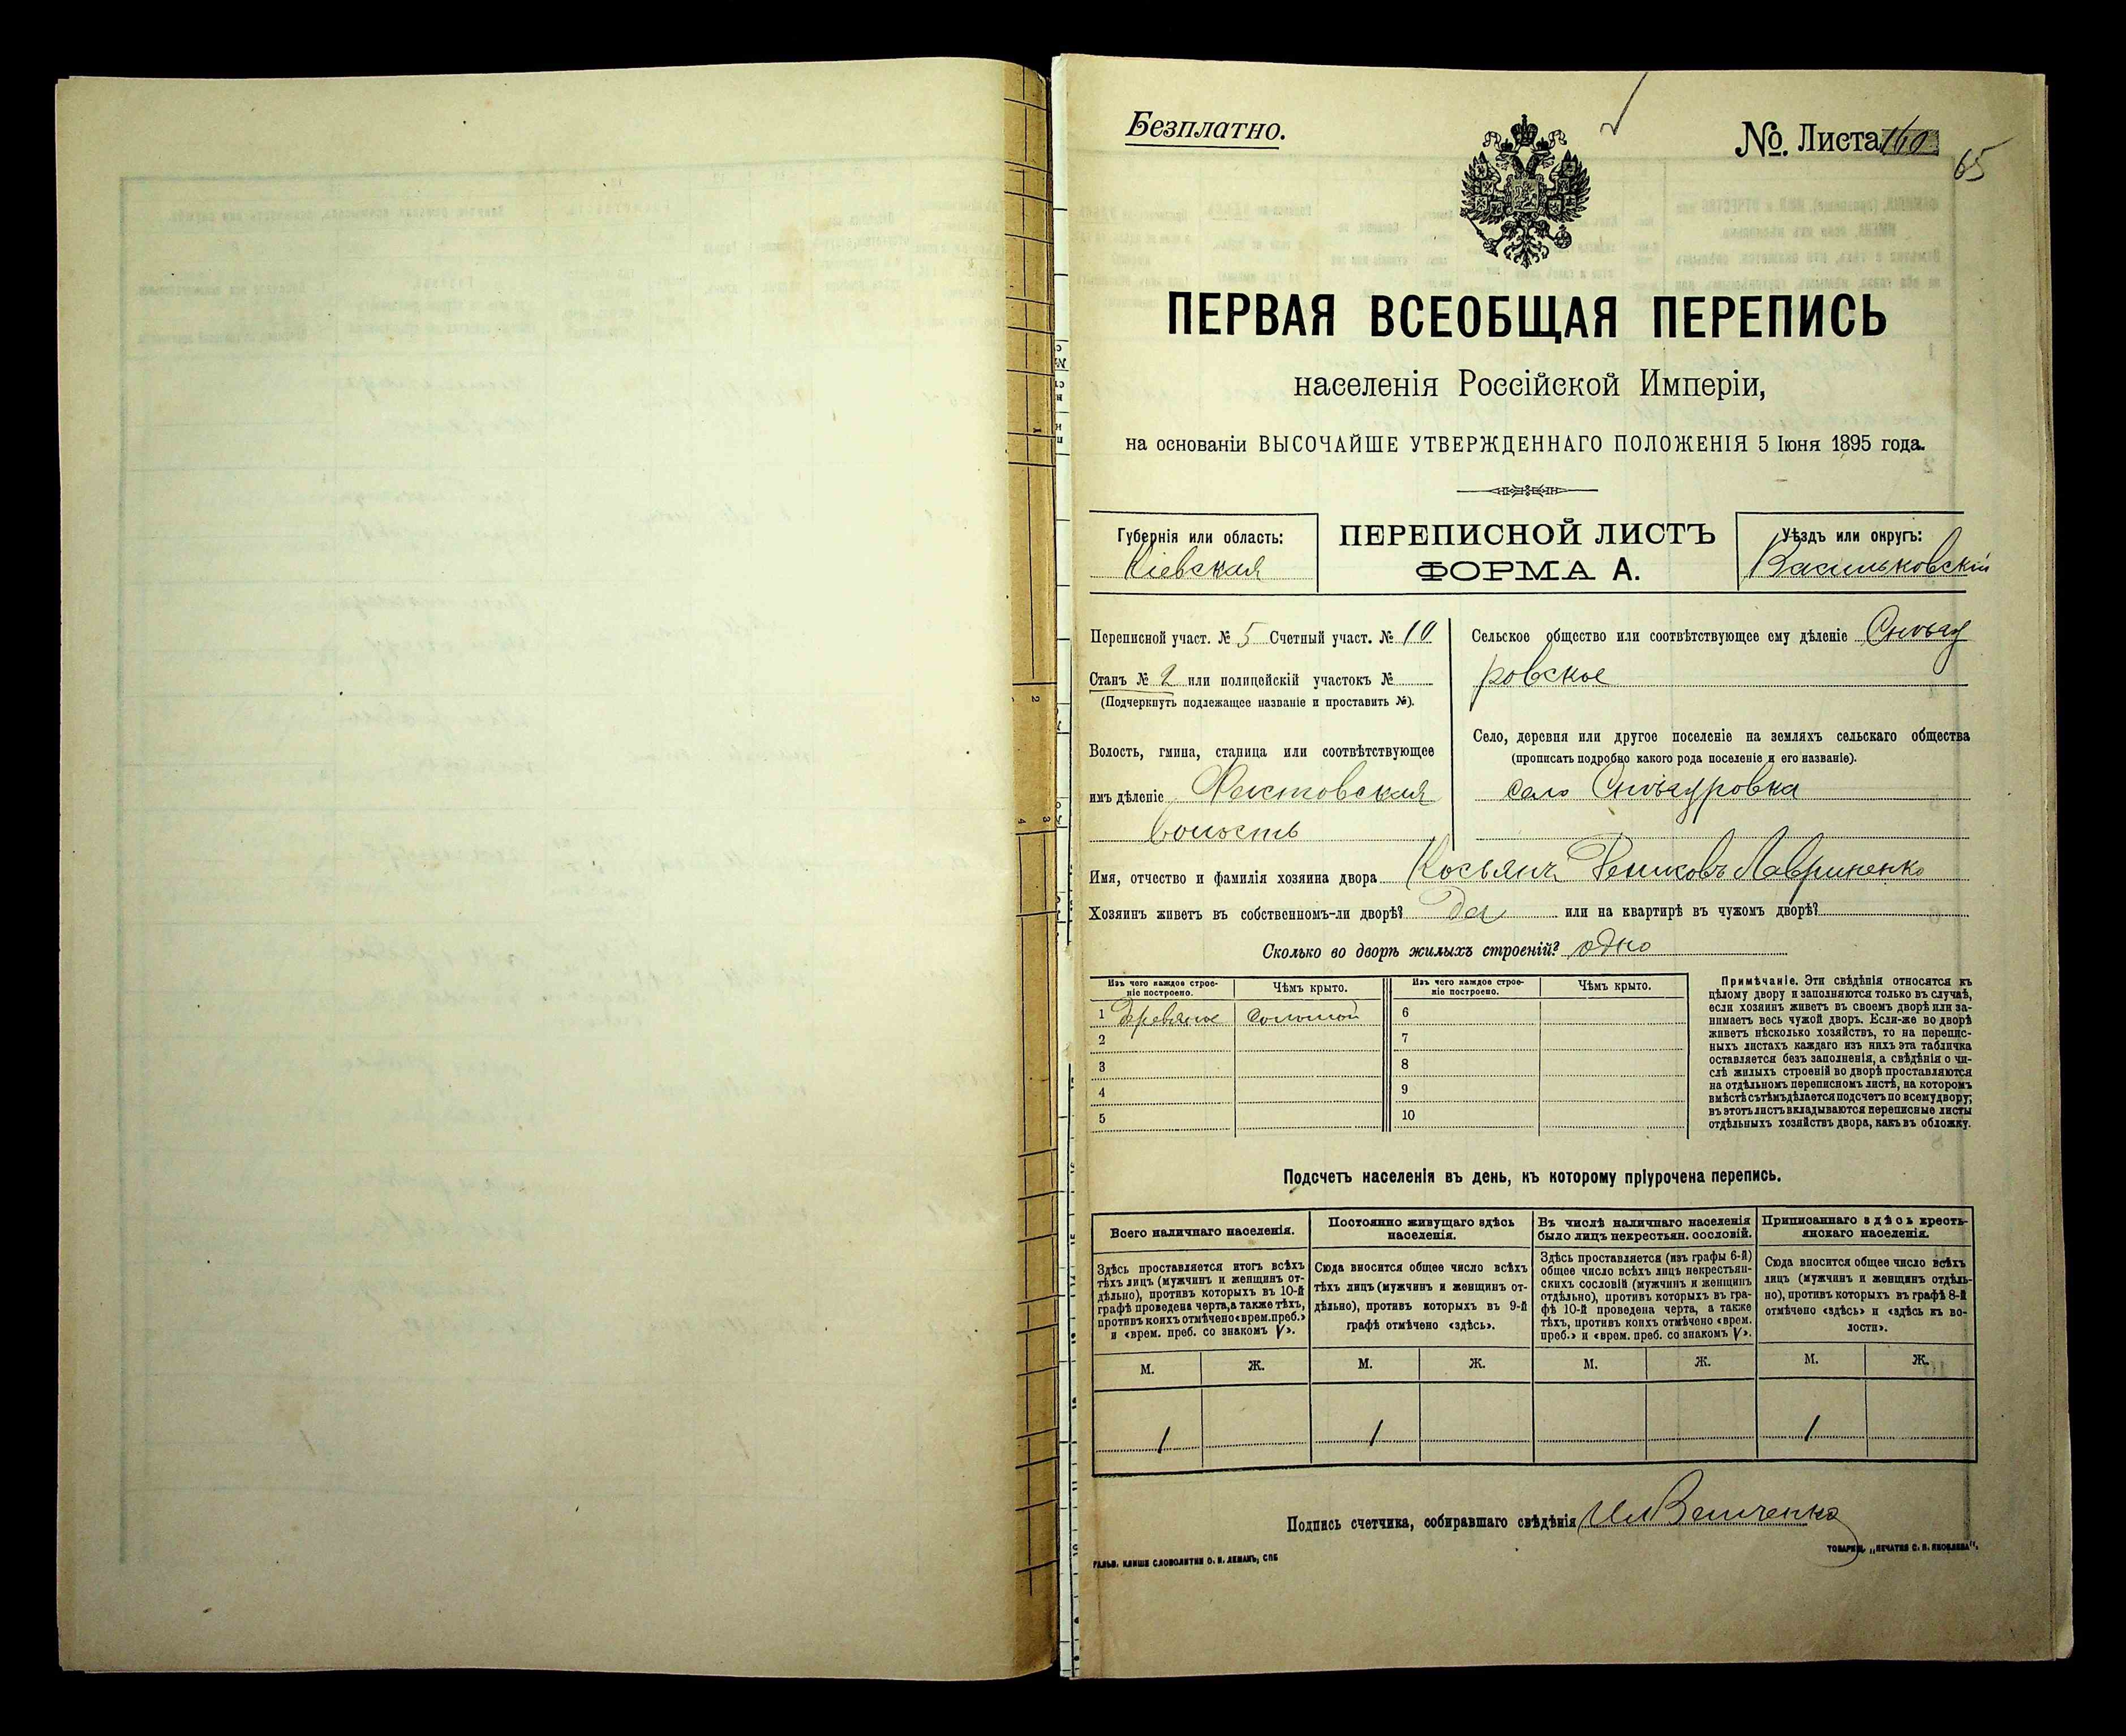 Безплатно.
№. Листа 160
65
ПЕРВАЯ ВСЕОБЩАЯ ПЕРЕПИСЬ
населенія Россійской Имперіи,
на основаніи ВЫСОЧАЙШЕ УТВЕРЖДЕННАГО ПОЛОЖЕНІЯ 5 Іюня 1895 года.
Губернія или область:
Кіевская
ПЕРЕПИСНОЙ ЛИСТЪ
ФОРМА А.
Уѣздъ или округъ:
Васильковскій
Переписной участ. № 5 Счетный участ. № 10
Станъ № 2 или полицейскій участокъ №
(Подчеркнуть подлежащее названіе и проставить №).
Волость, гмина, станица или соотвѣтствующее
имъ дѣленіе
волость
Сельское общество или соотвѣтствующее ему дѣленіе Снѣгу
ровское
Село, деревня или другое поселеніе на земляхъ сельскаго общества
(прописать подробно какого рода поселеніе и его названіе).
село Снѣгуровка
Имя, отчество и фамилія хозяина двора Косьянъ Лавриненко
Хозяинъ живетъ въ собственномъ-ли дворѣ? Да или на квартирѣ въ чужомъ дворѣ?
Сколько во дворѣ жилыхъ строеній? одно
Изъ чего каждое строе-
ніе построено.
Чѣмъ крыто.
Изъ чего каждое строе-
ніе построено.
Чѣмъ крыто.
1 Деревяное соломой 6
2 7
3 8
4 9
5 10
Примѣчаніе. Эти свѣдѣнія относятся къ
цѣлому двору и заполняются только въ случаѣ,
если хозяинъ живетъ въ своемъ дворѣ или за-
нимаетъ весь чужой дворъ. Если-же во дворѣ
живетъ нѣсколько хозяйствъ, то на перепис-
ныхъ листахъ каждаго изъ нихъ эта табличка
оставляется безъ заполненія, а свѣдѣнія о чи-
слѣ жилыхъ строеній во дворѣ проставляются
на отдѣльномъ переписномъ листѣ, на которомъ
вмѣстѣ съ тѣмъ дѣлается подсчетъ по всему двору;
въ этотъ листъ вкладываются переписные листы
отдѣльныхъ хозяйствъ двора, какъ въ обложку.
Подсчетъ населенія въ день, къ которому пріурочена перепись.
Всего наличнаго населенія.
Здѣсь проставляется итогъ всѣхъ
тѣхъ лицъ (мужчинъ и женщинъ от-
дѣльно), противъ которыхъ въ 10-й
графѣ проведена черта, а также тѣхъ,
противъ коихъ отмѣчено «врем. преб.»
и «врем. преб. со знакомъ V».
Постоянно живущаго здѣсь
населенія.
Сюда вносится общее число всѣхъ
тѣхъ лицъ (мужчинъ и женщинъ от-
дѣльно), противъ которыхъ въ 9-й
графѣ отмѣчено «здѣсь».
Въ числѣ наличнаго населенія
было лицъ некрестьян. сословій.
Здѣсь проставляется (изъ графы 6-й)
общее число всѣхъ лицъ некрестьян-
скихъ сословій (мужчинъ и женщинъ
отдѣльно), противъ которыхъ въ гра-
фѣ 10-й проведена черта, а также
тѣхъ, противъ коихъ отмѣчено «врем.
преб.» и «врем. преб. со знакомъ V».
Приписаннаго здѣсь кресть-
янскаго населенія.
Сюда вносится общее число всѣхъ
лицъ (мужчинъ и женщинъ отдѣль-
но), противъ которыхъ въ графѣ 8-й
отмѣчено «здѣсь» и «здѣсь къ во-
лости».
М. Ж. М. Ж. М. Ж. М. Ж.
1 1 1
Подпись счетчика, собиравшаго свѣдѣнія
ГАЛЬВ. КЛИШЕ СЛОВОЛИТНИ О. И. ЛЕМАНЪ, СПБ
ТОВАРИЩ. „ПЕЧАТНЯ С. П. ЯКОВЛЕВА".